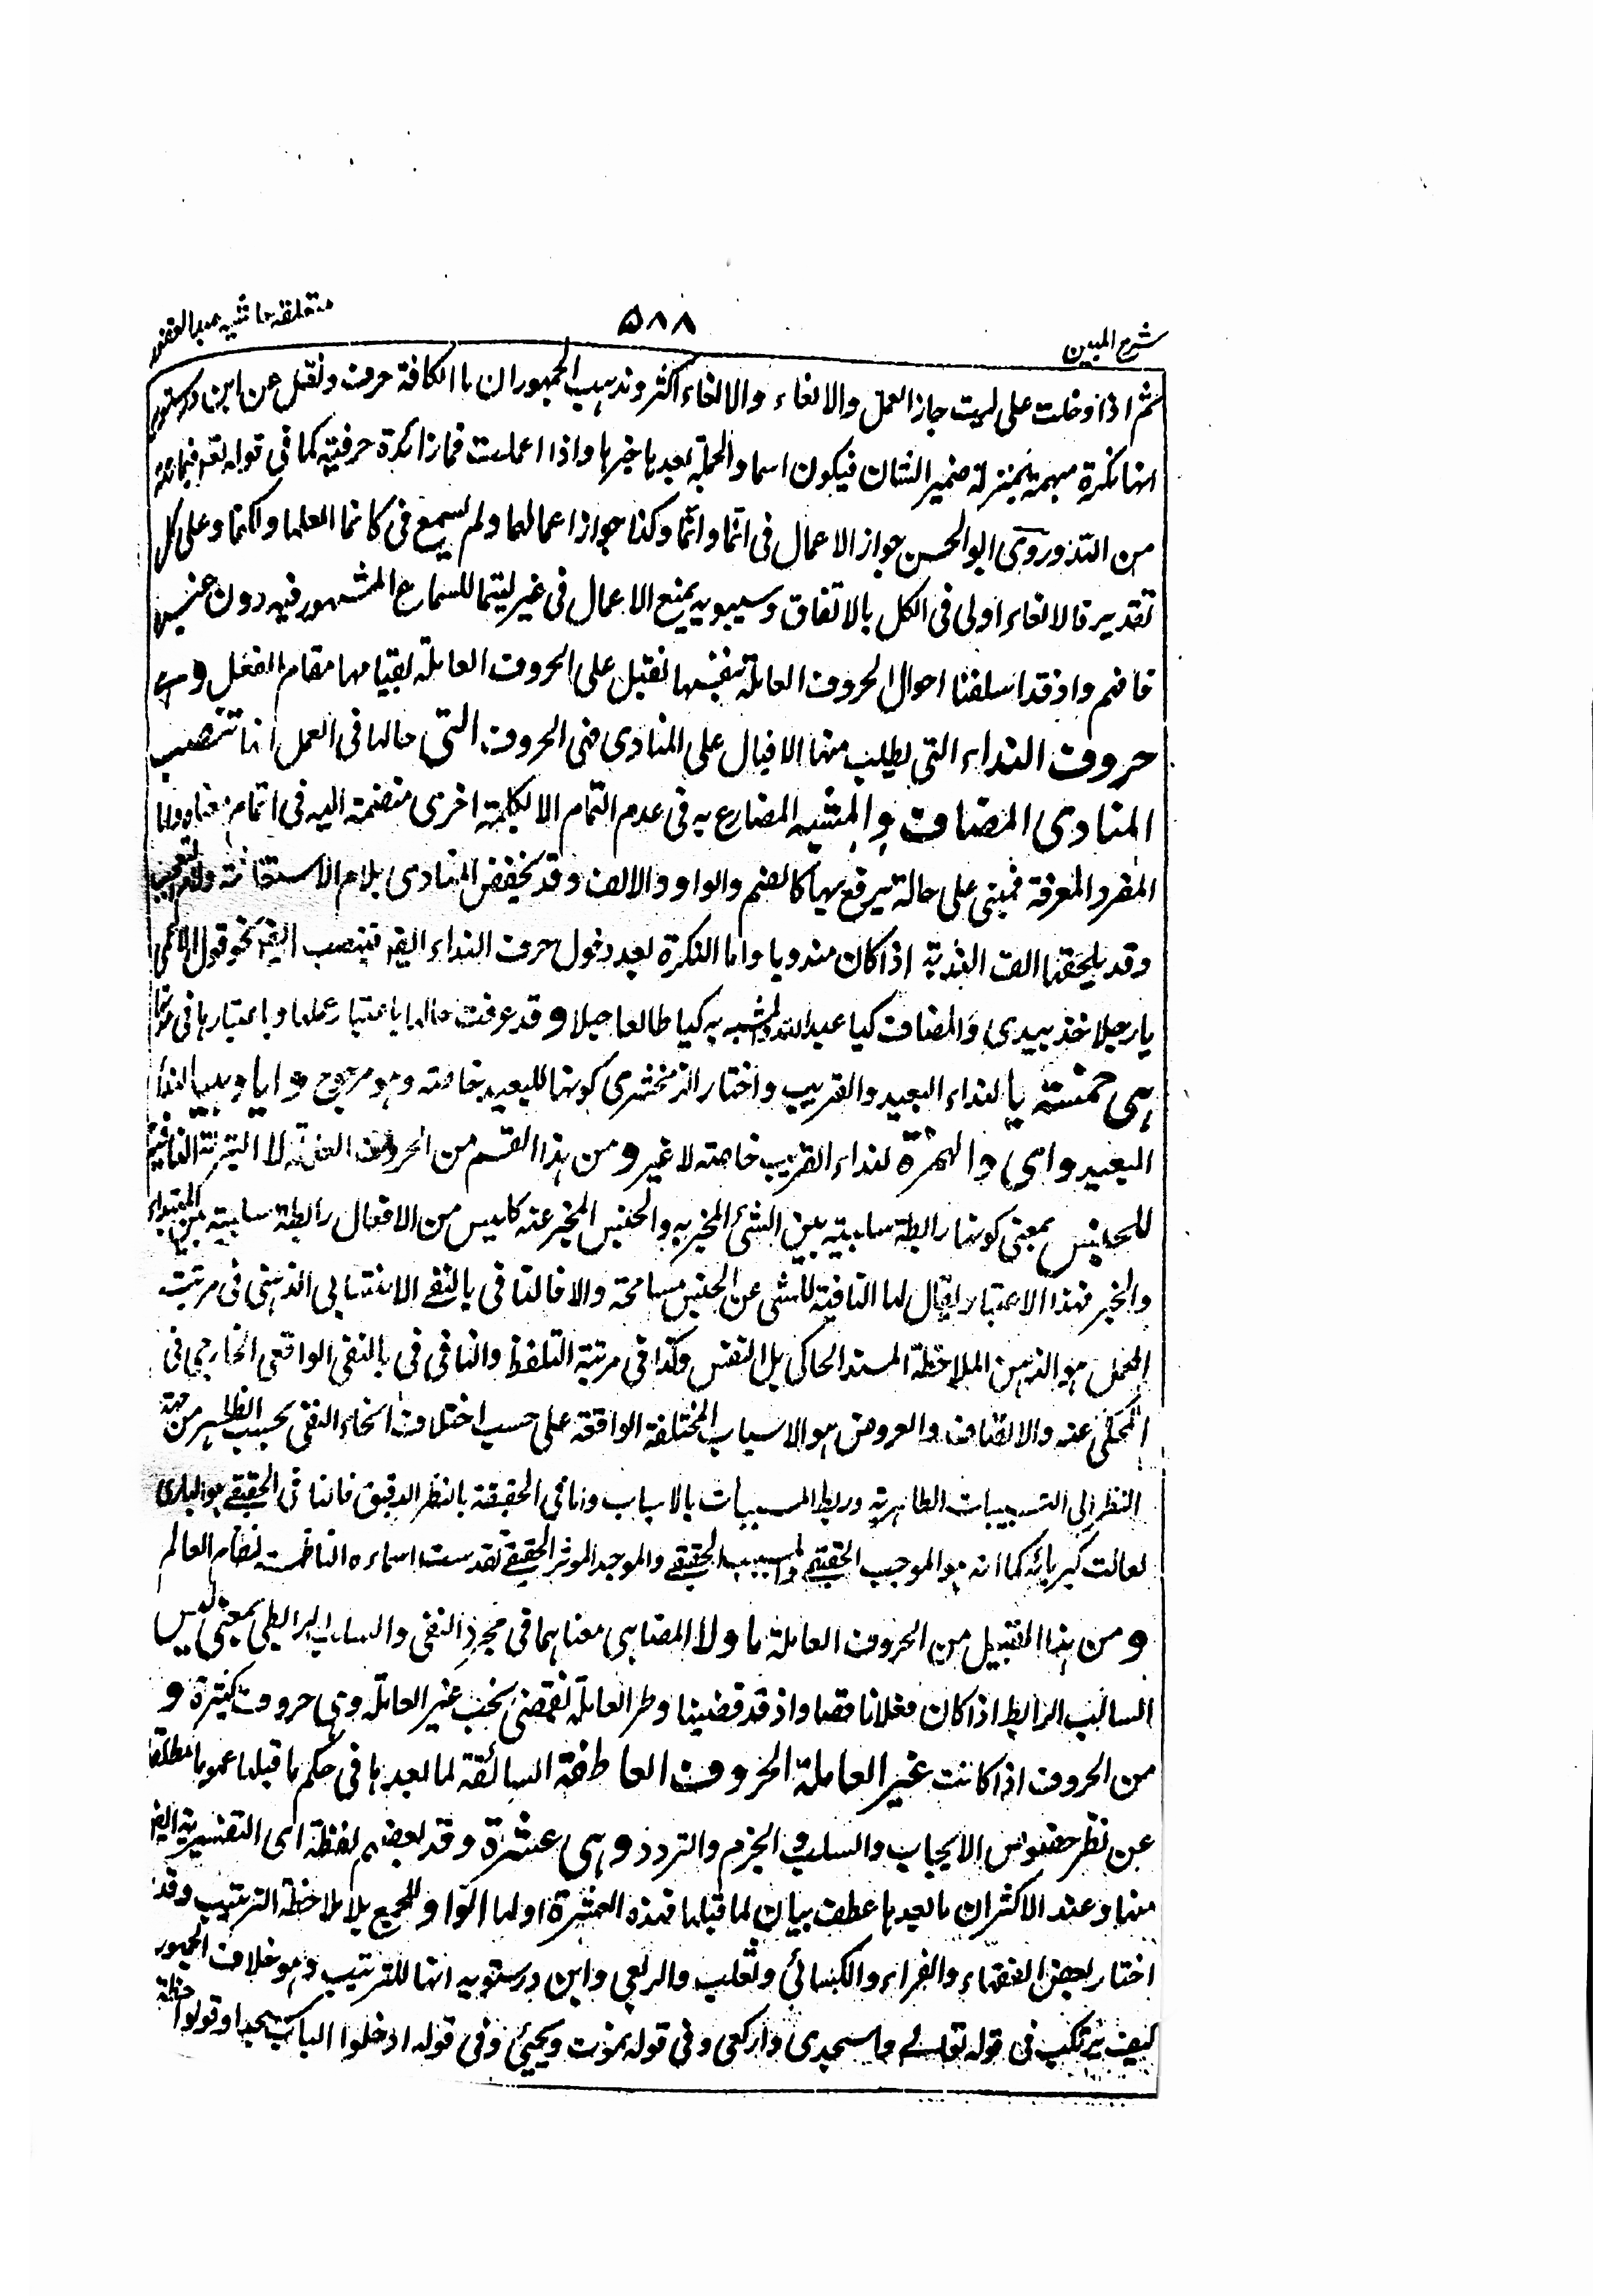 شرح المبين
۵۸۸
متعلقه حاشيه عبد الغفور
ثم اذا دخلت على ليت جاز العمل والالغاء والالغاء اكثر ومذهب الجمهور ان ما الكافة حرف ونقل عن ابن درستويه
انها نكرة مبهمة بمنزلة ضمير الشان فيكون اسما والجملة بعدها خبرها واذا اعملت فما زائدة حرفية كما في قوله تعم فبما رحمة
من الله وروى ابو الحسن جواز الاعمال في انما وانما وكذا جواز اعمالها ولم يسمع في كانما لعلما ولكنما وعلى كل
تقدير فالالغاء اولى في الكل بالاتفاق وسيبويه يمنع الاعمال في غير ليتما للسماع المشهور فيه دون غيره
فافهم واذ قد اسلفنا احوال الحروف العاملة بنفسها نقبل على الحروف العاملة بقيامها مقام الفعل وهي
حروف النداء التي يطلب منها الاقبال على المنادى فهي الحروف التي حالها في العمل انها تنصب
المنادى المضاف والمشبه المضارع به في عدم التمام الا بكلمة اخرى منضمة اليه في اتمام معناه واما
المفرد المعرفة فمبني على حالة يرفع بها كالضم والواو والالف وقد يخفض المنادى بلام الاستغاثة ولام التعجب
وقد يلحقها الف الندبة اذا كان مندوبا واما النكرة بعد دخول حرف النداء اليه فينصب ايضا نحو قول الاعمى
يا رجلا خذ بيدي والمضاف كيا عبد الله والمشبه به كيا طالعا جبلا وقد عرفت حالها باعتبار عملها وباعتبارها في
هي خمسة يا لنداء البعيد والقريب واختار الزمخشري كونها للبعيد خاصة وهو مرجوح وايا وهيا لنداء
البعيد واي والهمزة لنداء القريب خاصة لا غير ومن هذا القسم من الحروف العاملة لا التبرئة النافية
للجنس بمعنى كونها رابطة سلبية بين الشئ المخبر به والجنس المخبر عنه كليس من الافعال رابطة سلبية بين المبتداء
والخبر فبهذا الاعتبار يقال لها النافية للشى عن الجنس مسامحة والا فالنافي بالنفي الانتسابي الذهني في مرتبة
المحمل هو الذهن الملاحظة المسند الحاكي بل النفس وكذا في مرتبة التلفظ والنافي في بالنفي الواقعي الخارجي في
المحكى عنه والاتصاف والعروض هو الاسباب المختلفة الواقعة على حسب اختلاف انحاء النفي بحسب الظاهر من جهة
النظر الى التسبيبات الظاهرية وربط المسببات بالاسباب واما في الحقيقة بالنظر الدقيق فالنافي الحقيقي هو البارى
تعالت كبريائه كما انه هو الموجب الحقيقي والمسبب الحقيقي والموجد الموثر الحقيقي تقدست اسماءه الناظمة نظام العالم
ومن هذا القبيل من الحروف العاملة ما ولا المضاهي معناهما في مجرد النفي والسلب الرابطي بمعنى ليس
السالب الرابط اذا كان فعلا ناقصا واذ قد قضينا وطر العاملة فنقضي نحب غير العاملة وهي حروف كثيرة و
من الحروف اذا كانت غير العاملة الحروف العاطفة السائقة لما بعدها في حكم ما قبلها عموما مطلقا
عن نظر خصوص الايجاب والسلب والجزم والتردد وهي عشرة وقد بعضهم لفظة اى التفسيرية ايضا
منها وعند الاكثر ان ما بعدها عطف بيان لما قبلها فهذه العشرة اولها الواو للجمع بلا ملاحظة الترتيب وقد
اختار بعض الفقهاء والفراء والكسائي وثعلب والربعي وابن درستويه انها للترتيب وهو خلاف الجمهور
كيف يرتكب في قوله تعالى واسجدى واركعى وفي قوله نموت ونحيى وفي قوله ادخلوا الباب سجدا وقولوا حطة